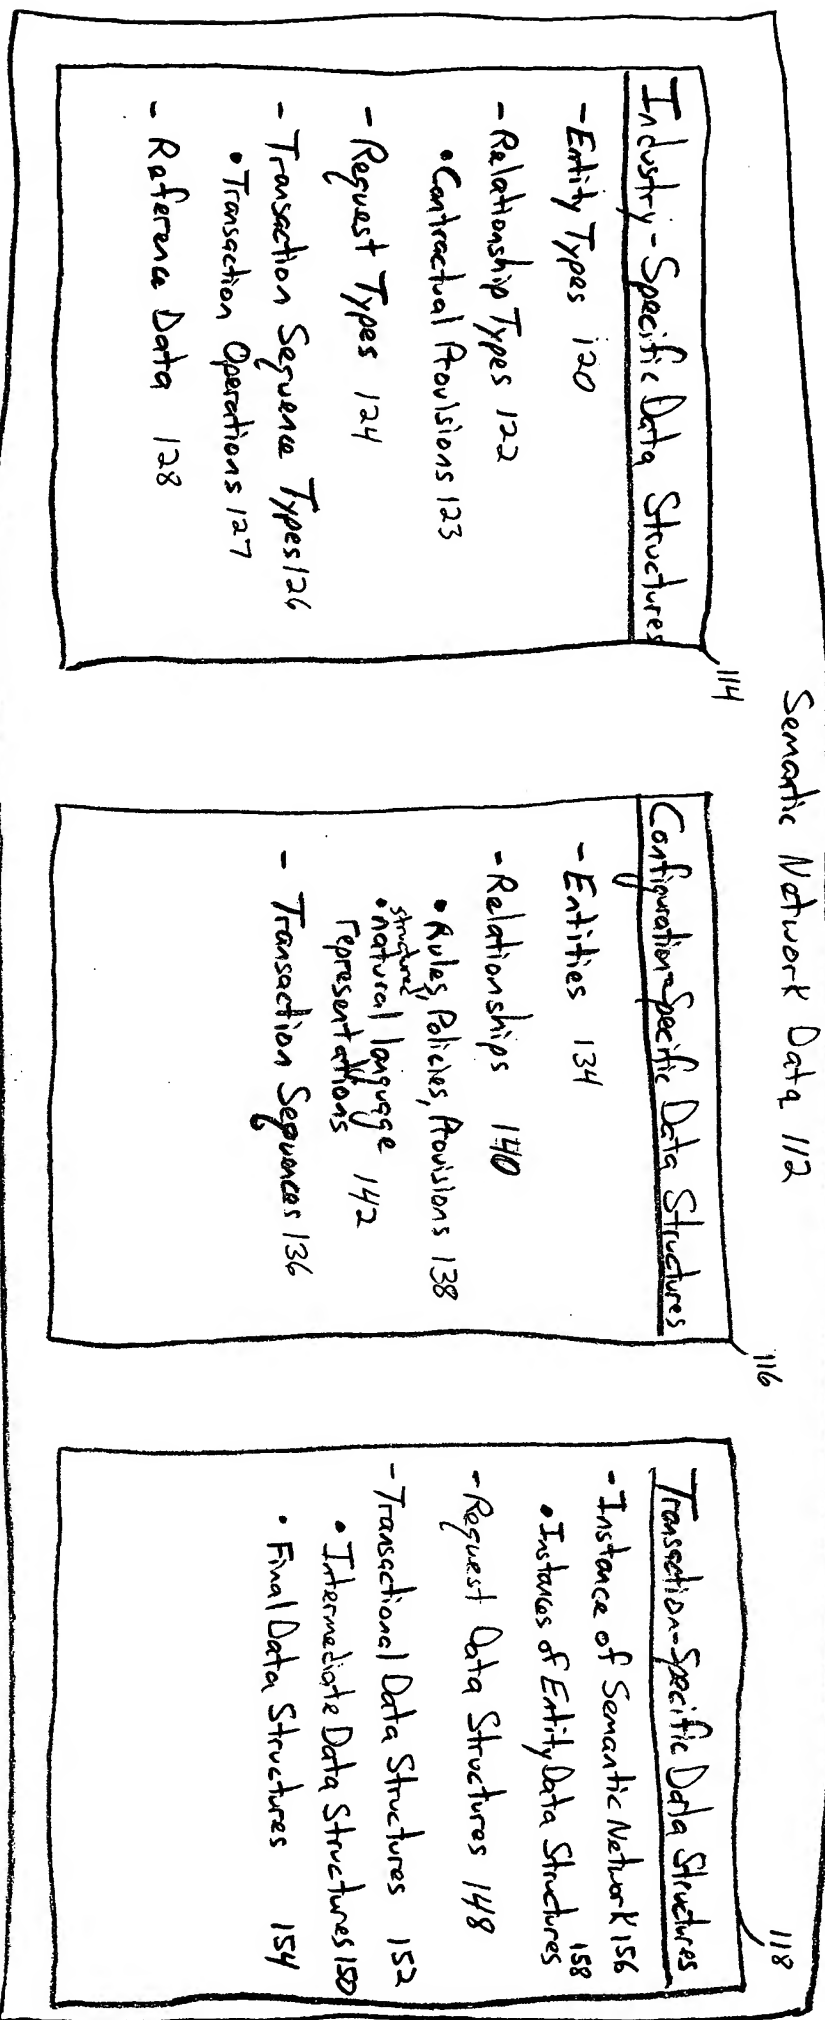 Semantic Network Data 112
114
Industry-Specific Data Structures
- Entity Types 120
- Relationship Types 122
• Contractual Provisions 123
- Request Types 124
- Transaction Sequence Types 126
• Transaction Operations 127
- Reference Data 128
116
Configuration-Specific Data Structures
- Entities 134
- Relationships 140
• Rules, Policies, Provisions 138
structured
• natural language
representations 142
- Transaction Sequences 136
118
Transaction-Specific Data Structures
- Instance of Semantic Network 156
• Instances of Entity Data Structures 158
- Request Data Structures 148
- Transactional Data Structures 152
• Intermediate Data Structures 150
• Final Data Structures 154